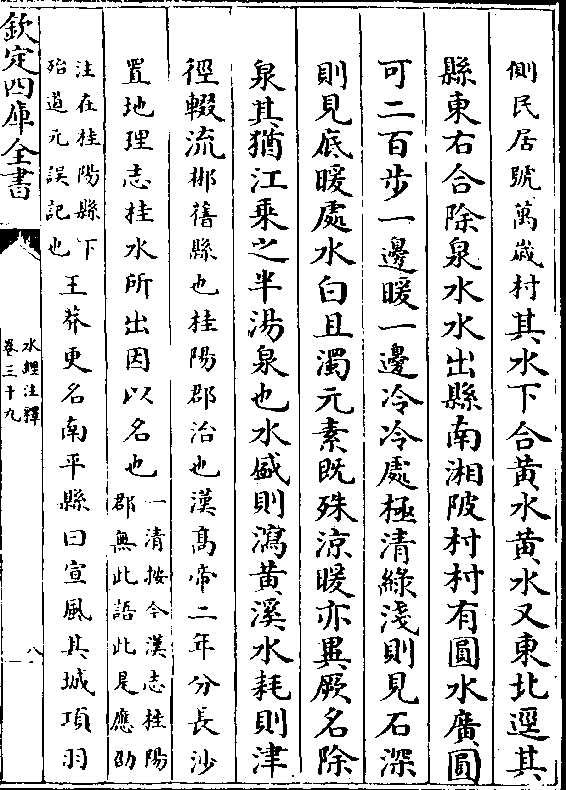 側民居號萬歲村其水下合黃水黃水又東北逕其
縣東右合除泉水水出縣南湘陂村村有圓水廣圓
可二百步一邊暖一邊冷冷處極清綠淺則見石深
則見底暖處水白且濁元素既殊涼暖亦異厥名除
泉其猶江乘之半湯泉也水盛則瀉黃溪水耗則津
徑輟流郴舊縣也桂陽郡治也漢高帝二年分長沙
置地理志桂水所出因以名也一清按今漢志桂陽郡無此語此是應劭
注在桂陽縣下殆道元誤記也王莽更名南平縣曰宣風其城項羽
欽定四庫全書
水經注釋
卷三十九
八